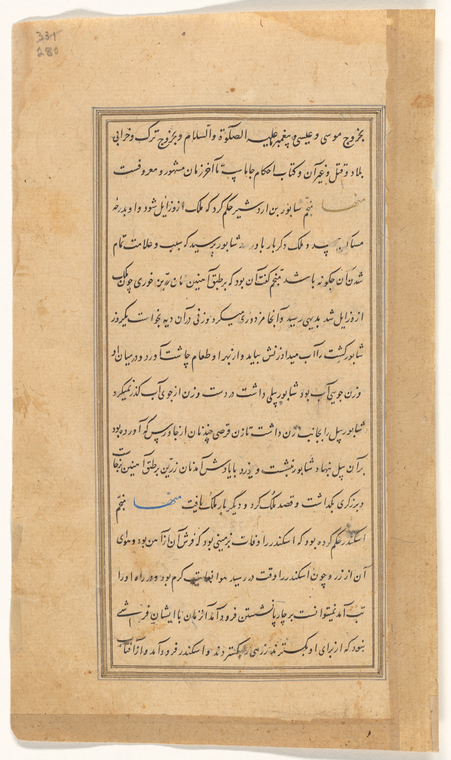 331
281
بخروج موسی و عیسی و پیغمبر علیه الصلوة والسلام و بخروج ترک و خرابی
بلاد و قتل و غیر آن و کتاب احکام جاماسپ تا آخر زمان مشهور و معروفست
منها منجم شاپور بن اردشیر حکم کرد که ملک از و زایل شود و او بدرجه
مساکین رسد و ملک دگر بار باو رسد شاپور پرسید که سبب و علامت تمام
شدن آن چگونه باشد منجم گفت آن بود که بر طبق آهنین نان زرین خوری چون ملک
از و زایل شد بدیهی رسید و آنجا مزدوری میکرد و زنی در آن دیه
شاپور کشت را آب میداد زنش بیامد و از بهر او طعام چاشت آورد و در میان او
و زن جوی آب بود شاپور بیلی داشت در دست و زن از جوی آب گذر نمیکرد
شاپور بیل را بجانب زن داشت تا زن قرصی چند نان از جاورس که آورده بود
بر آن بیل نهاد شاپور بنشست و یادش آمد نان زرین بر طبق آهنین
و برزگری بگذاشت و قصد ملک کرد و دیگر بار ملک یافت منها منجم
اسکندر حکم کرده بود که اسکندر را وفات بزمینی بود که فرش آن از آهن بود و سمای
آن از زر و چون اسکندر را وقت در رسید هوا بغایت گرم بود و در راه او را
تب آمد نمیتوانست بر چارپا نشستن فرود آمد آن زمان با ایشان فرشی
نبود که از برای او بگسترند زرهی بگستردند و اسکندر فرود آمد و از آفتاب